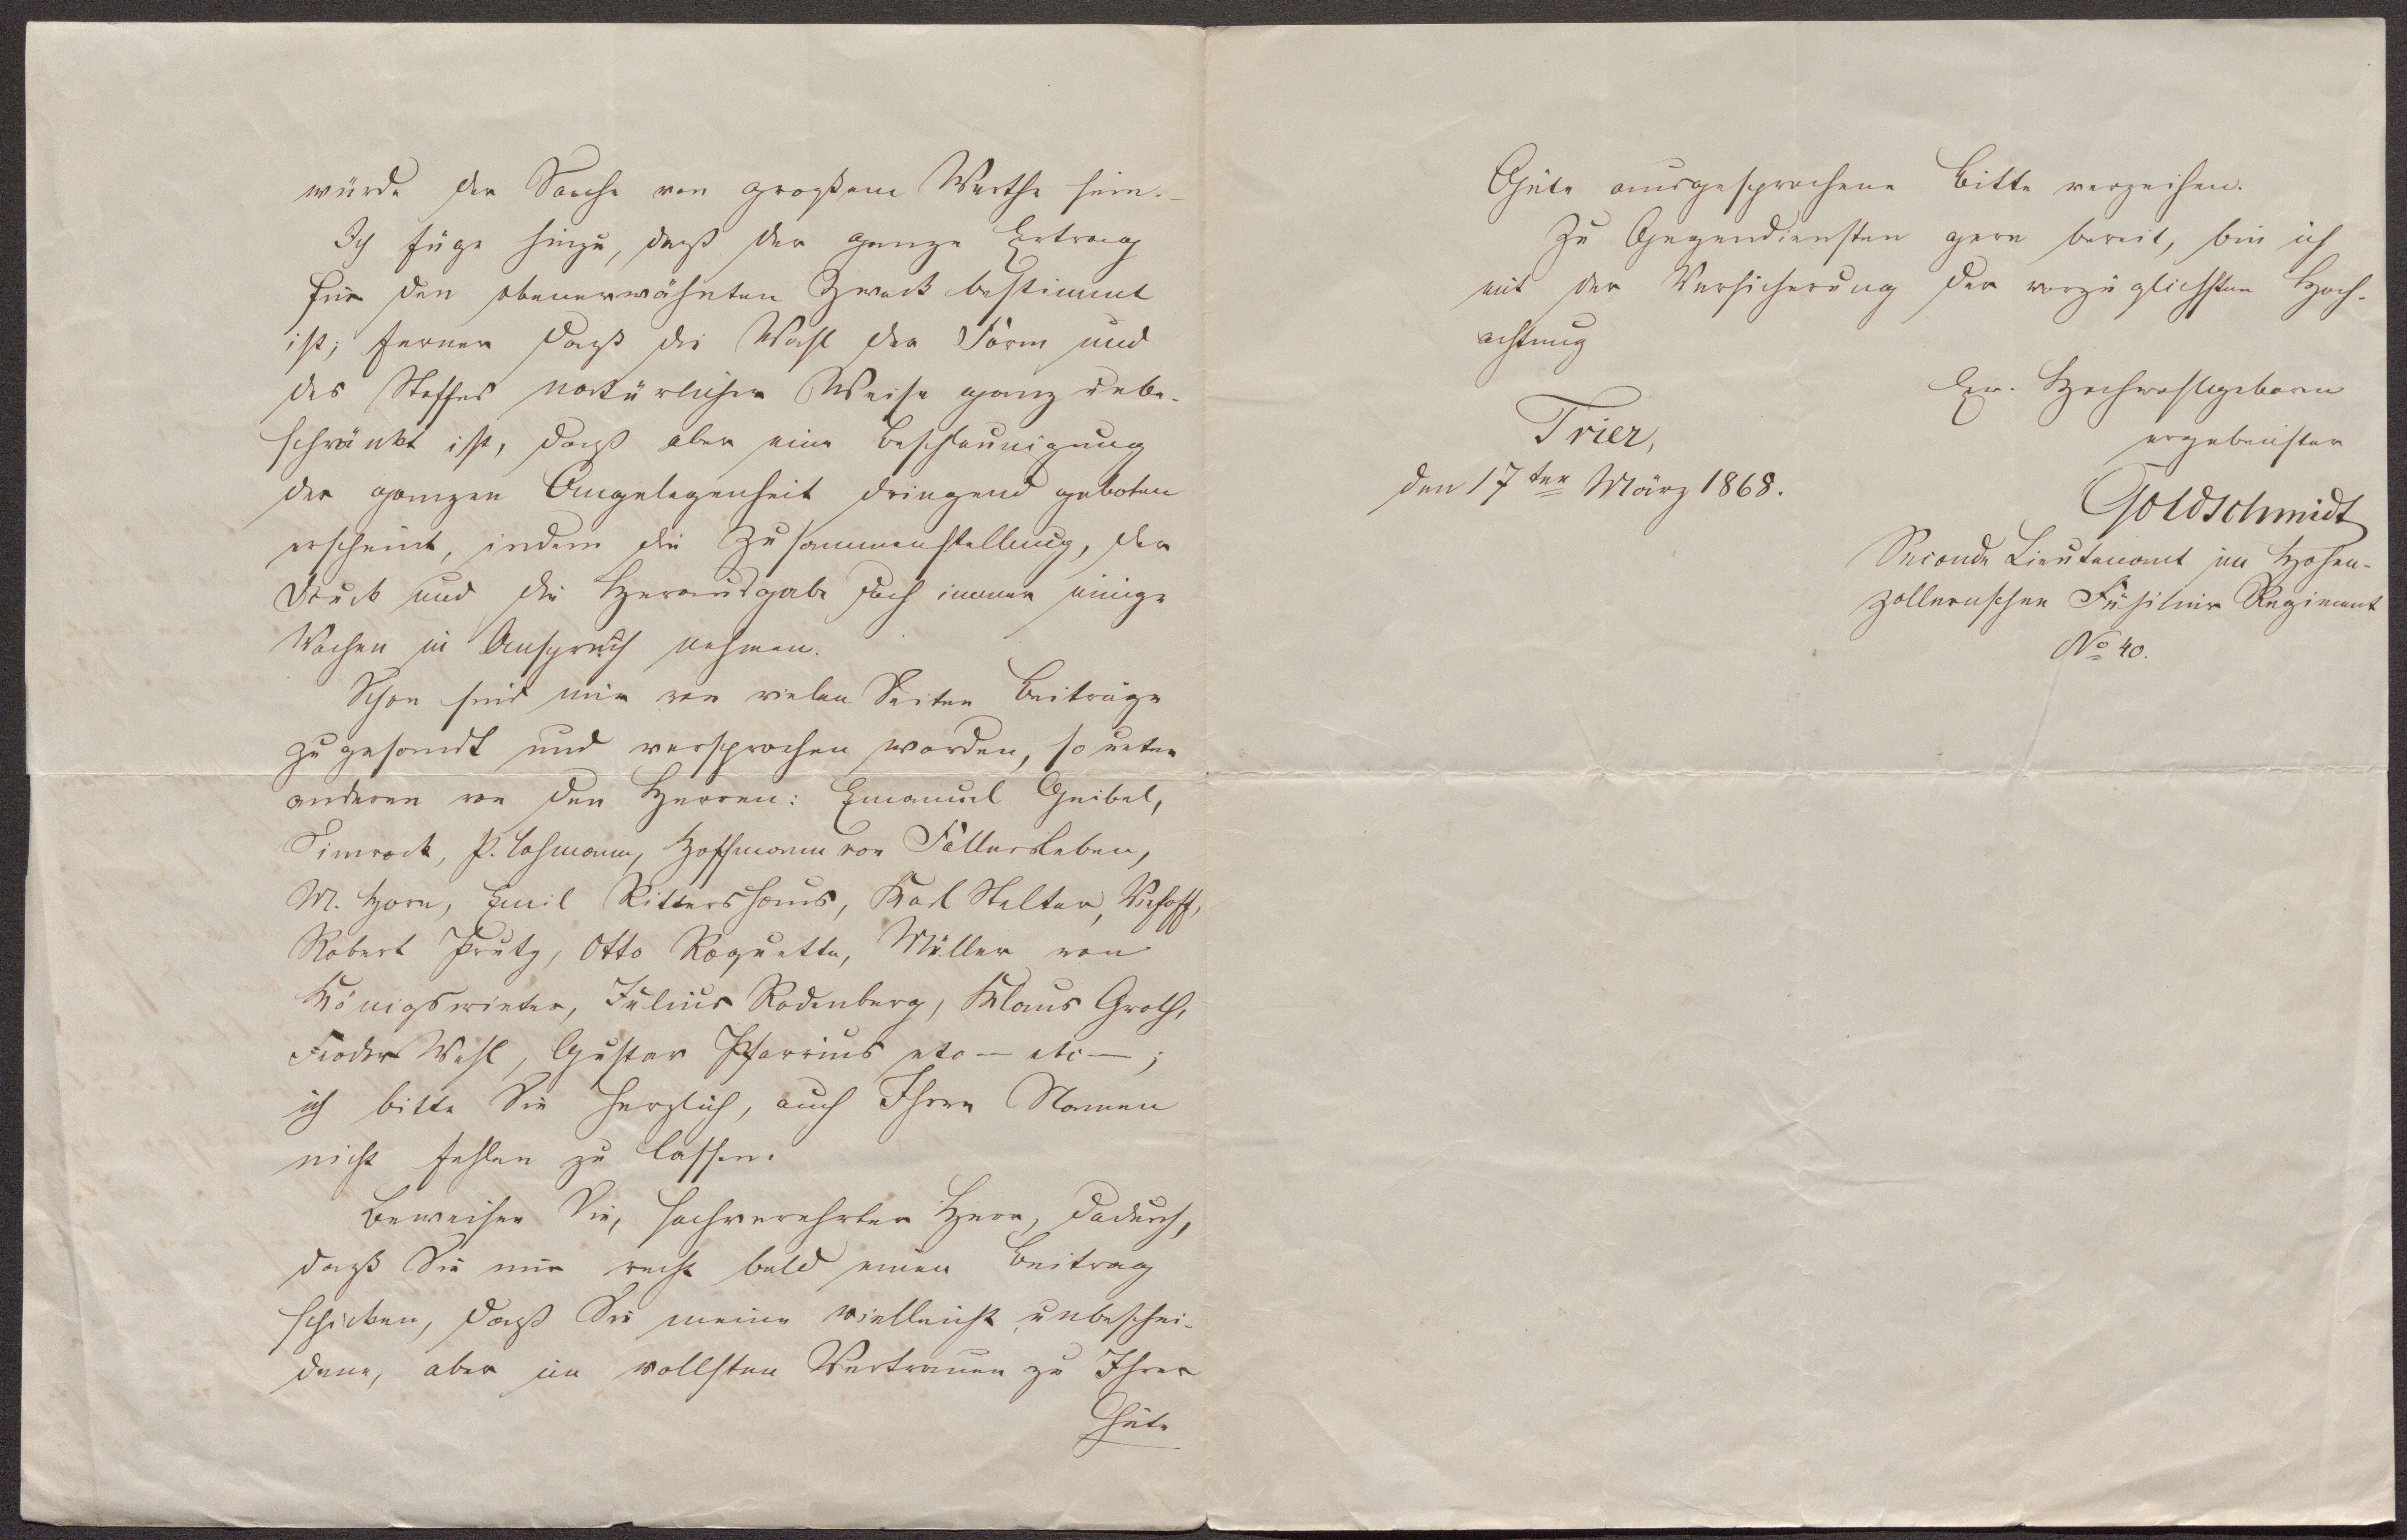 würde der Sache von großem Werthe sein.-
Ich füge hinzu, daß der ganze Ertrag
für den obenerwähnten Zweck bestimmt
ist; ferner daß die Wahl der Form und
des Stoffes natürlicher Weise ganz unbe-
schränkt ist, daß aber eine Beschleunigung
der ganzen Angelegenheit dringend geboten
erscheint, indem die Zusammenstellung, der
Druck und die Herausgabe doch immer einige
Wochen in Anspruch nehmen.
Schon sind mir von vielen Seiten Beiträge
zugesandt und versprochen worden, so unter
anderen von den Herren: Emanuel Geibel,
Simrock, P. Lohmann, Hoffmann von Fallersleben,
M. Horn, Emil Rittershaus, Karl Stelter, Viehoff,
Robert Prutz, Otto Roquette, Müller von
Königswinter, Julius Rodenberg, Klaus Groth,
Feodor Wehl, Gustav Pfarrius etc — etc — ;
ich bitte Sie herzlich, auch Ihren Namen
nicht fehlen zu lassen.
Beweisen Sie, hochverehrter Herr, dadurch,
daß Sie mir recht bald einen Beitrag
schicken, daß Sie meine vielleicht unbeschei-
dene, aber im vollsten Vertrauen zu Ihrer
Güte
Güte ausgesprochene Bitte verzeihen.
Zu Gegendiensten gern bereit, bin ich
mit der Versicherung der vorzüglichsten Hoch-
achtung
Ew. Hochwohlgeboren
ergebenster
Trier,
den 17ten März 1868.
Goldschmidt
Seconde Lieutenant im Hohen-
zollernschen Füsilier Regiment
No 40.